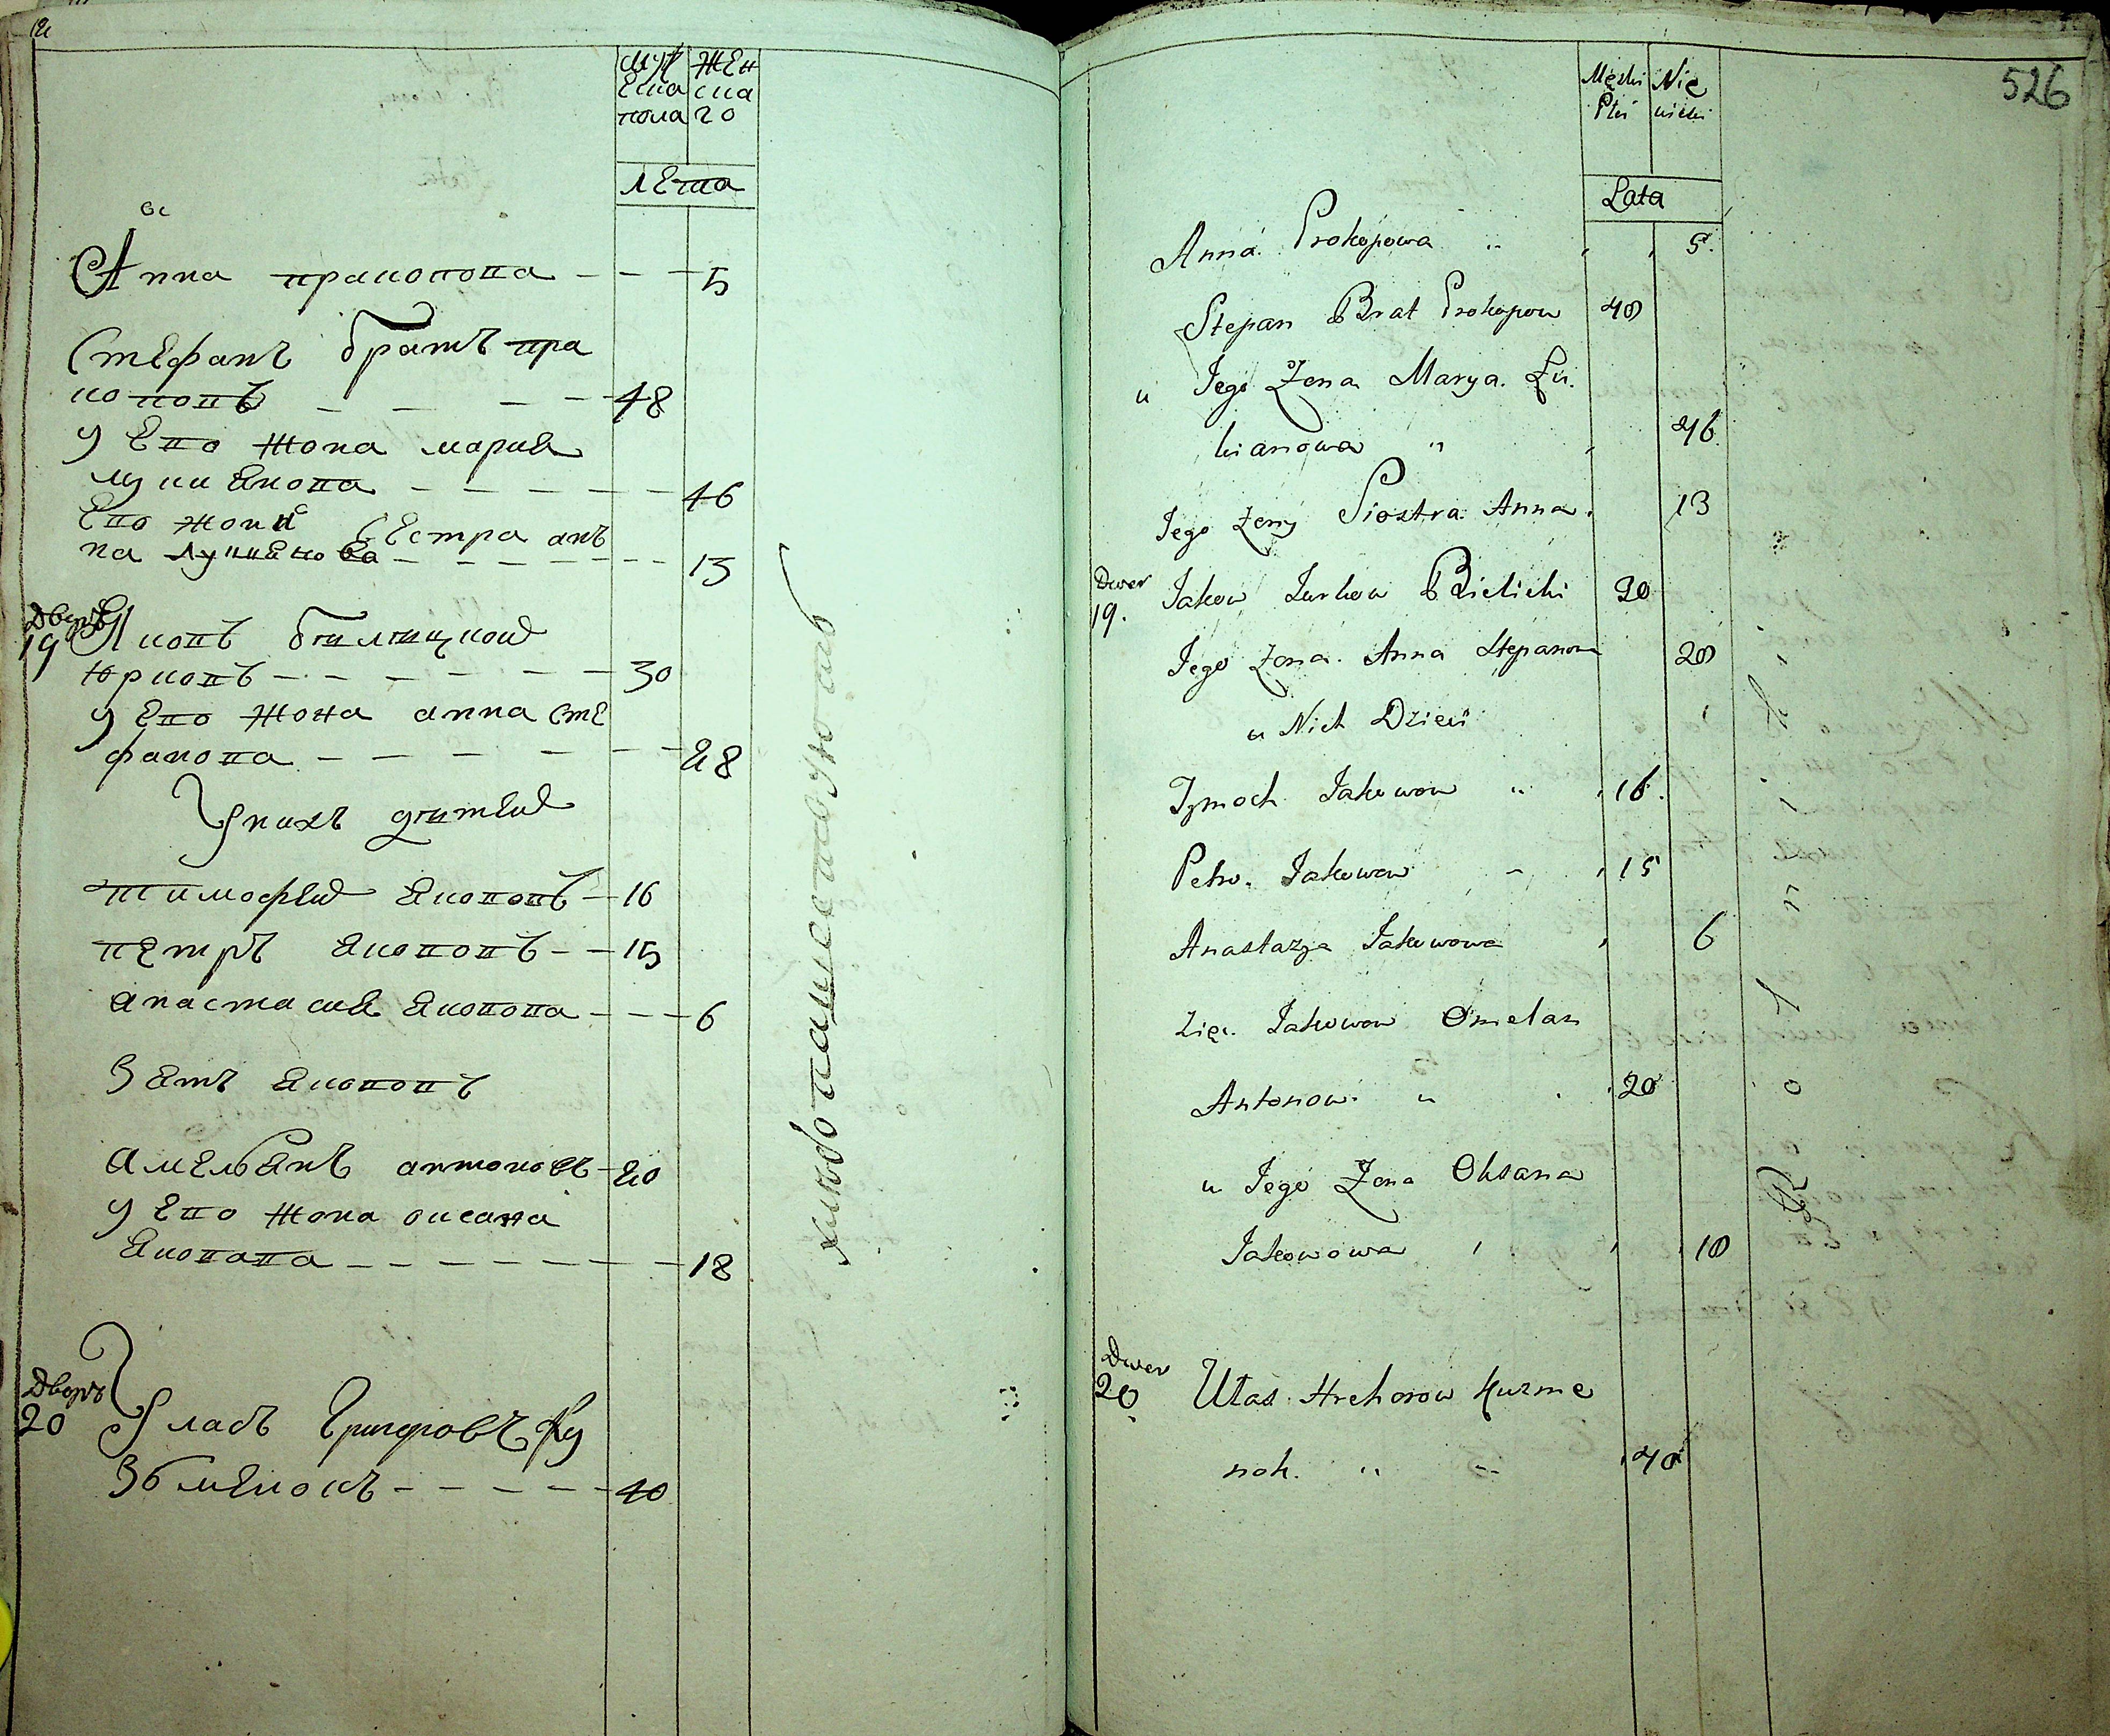 муж жен
еска ска
пола го
лета
Анна пракопова — — — 5
Стефанъ братъ пра
коповъ — — — — 48
у ево жона мария
лукиянова — — — — — — 46
ево жони сестра ан
на лукиянова — — — — — — 13
Дворъ
19 Яковъ билицкой
юрковъ — — — — — — 30
у ево жона анна сте
фанова — — — — — — 28
У нихъ дители
тимофей яковов — 16
петръ яковов — — 15
анастасия яковова — — — 6
Зять яковов
амельянъ антоновъ — 20
у ево жона оксана
яковава — — — — — — — 18
Дворъ
20 Уласъ Григоровъ Ку
зьменокъ — — — — — 40
526
Męski Nie
Płci wieski
Lata
Anna Prokopowa „ 5.
Stepan Brat Prokopow 48
u Jego Zona Marya Łu.
kianowa „ 46
Jego żeny Siostra Anna. 13
Dwer
19. Jakow Jurkow Bielicki 30
Jego żona. Anna Stepanow 28
u Nich Dzieci
Tymoch Jakowow „ 16.
Petro. Jakowow 15
Anastazya Jakowowa 6
Zięć Jakowow Omelan
Antonow. „ 20
u Jego Zona Oksana
Jakowowa 18
Dwer
20. Ułas Hrehorow Kuzme
nok. „ 40